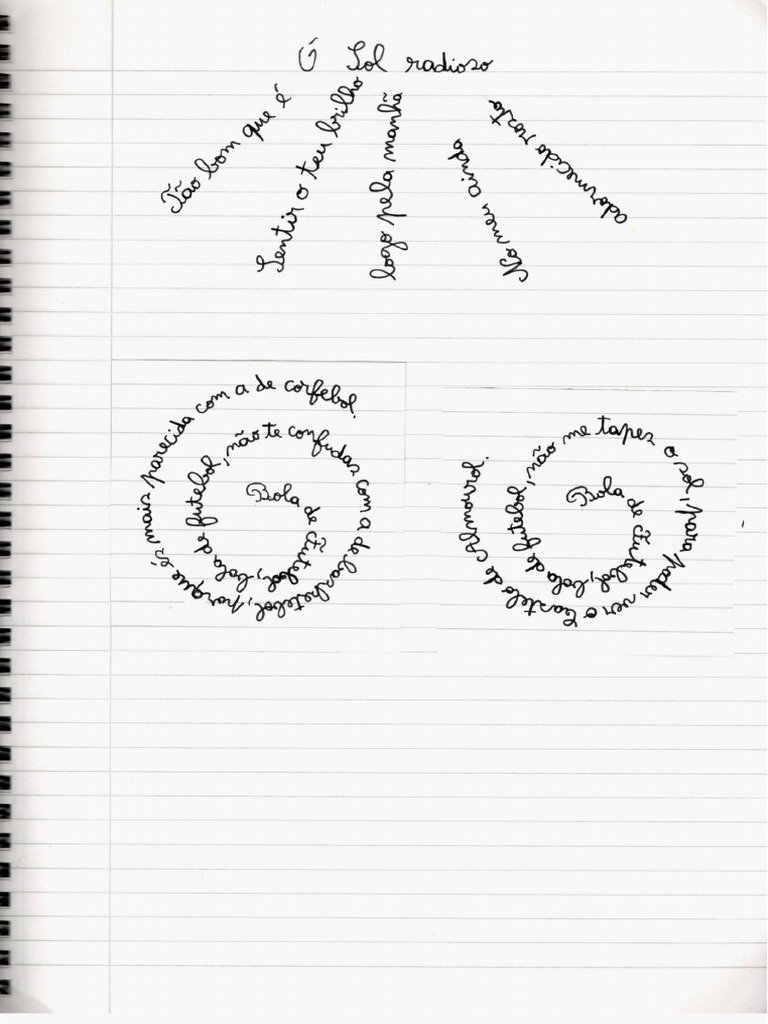 Ó Sol radioso
Tão bom que é
Sentir o teu brilho
logo pela manhã
No meu ainda
adormecido rosto
Bola de Futebol, bola de futebol, não te confudas com a de basketebol, porque és mais parecida com a de corfebol.
Bola de Futebol, bola de futebol, não me tapes o sol, para poder ver o Castelo de Almourol.